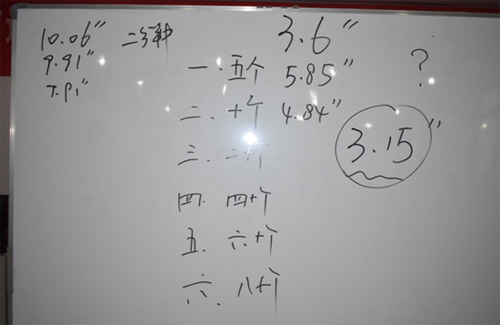 10.06"
9.91"
7.91"
二等
3.6"
一.五个 5.85" ?
二.十个 4.84"
3.15"
三.二十个
四.四十个
五.六十个
六.八十个